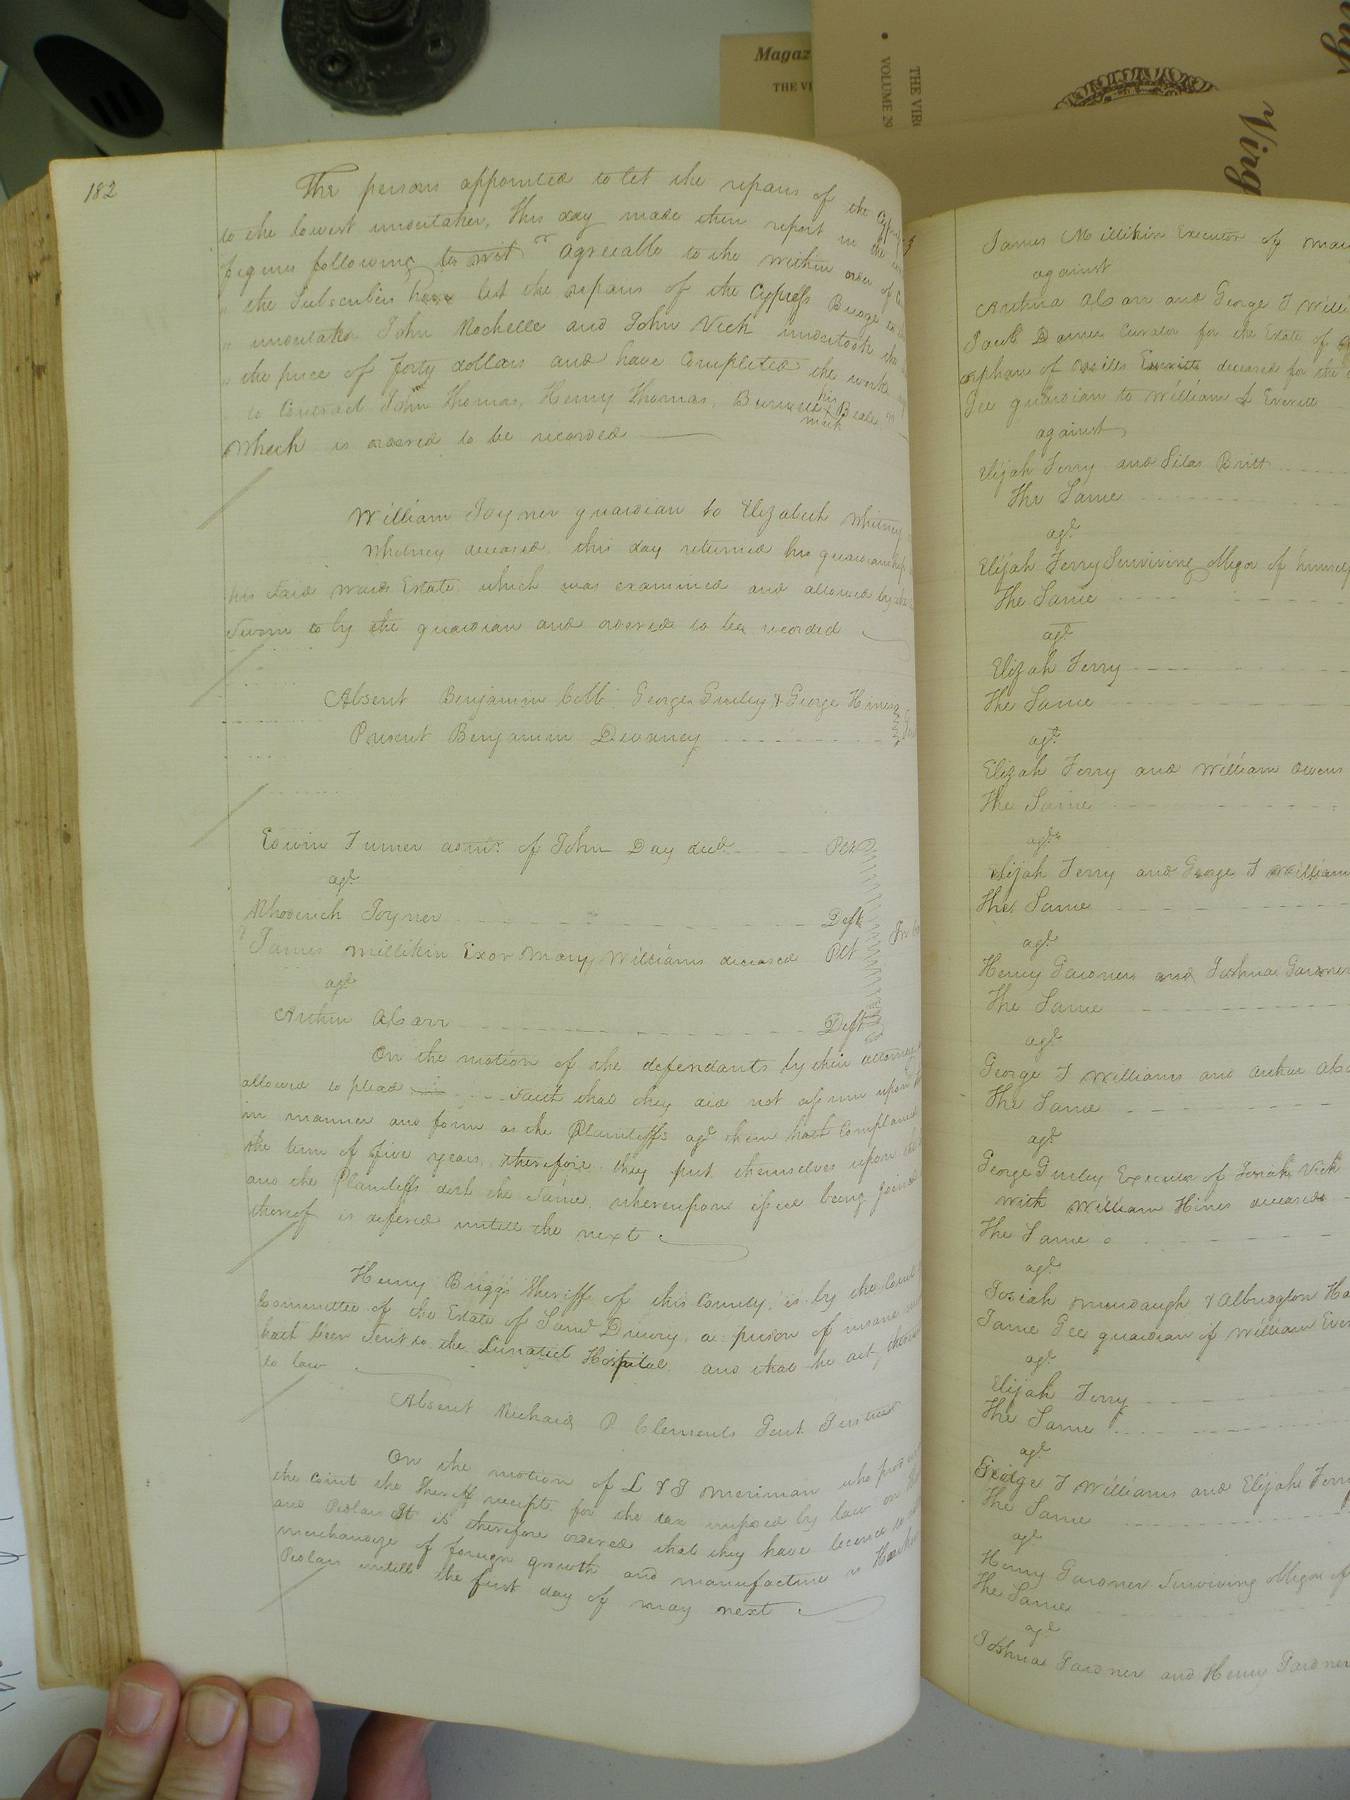 Magaz
THE VI
THE VIR
VOLUME 29
Virg
182
The persons appointed to let the repairs of the Cypress
to the lowest undertaker, this day made their report in the
figures following to wit agreeable to the within order of
the Subscribers have let the repairs of the Cypress Bridge to
undertaker John Rochelle and John Vick undertook the
the price of forty dollars and have Completed the work
to Contract John Thomas, Henry Thomas, Burwell his X mark Beale
Which is ordered to be recorded
William Joyner guardian to Elizabeth Whitney
Whitney deceased, this day returned his guardianship
his said wards Estate which was examined and allowed by
Sworn to by the guardian and ordered to be recorded
Absent Benjamin Cobb George Gurley & George Hines
Present Benjamin Devaney
Edwin Turner admr. of John Day decd. Plt
agt.
Rhoderick Joyner Deft
James Millikin Exor Mary Williams deceased Plt
agt
Arthur Alsarr Deft
On the motion of the defendants by their attorney
allowed to plead Saith that they did not assume upon
in manner and form as the Plaintiffs agt. them hath Complained
the term of five years, therefore they put themselves upon the
and the Plaintiffs doth the Same, whereupon issue being joined
thereof is defered untill the next
Henry Briggs Sheriff of this County, is by the Court
Committee of the Estate of Saml Drewry, a person of insane
hath been sent to the Lunatick Hospital, and that he act
to law
Absent Richard P Clements Gent Justice
On the motion of L & J Merriman who produced
the Court the Sheriff receipt for the tax imposed by law on
and Pedlars It is therefore ordered that they have licence to
merchandize of foreign growth and manufacture as Hawkers
Pedlars untill the first day of May next
James Millikin Executor of Mary
against
Arthur Alsarr and George T Willi
Jacob Barnes Curator for the Estate of
orphan of Willis Everitt deceased for the
Gee guardian to William L Everitt
against
Elijah Ferry and Silas Britt
The Same
agt
Elijah Ferry Surviving Obligor of himself
The Same
agt
Elijah Ferry
The Same
agt
Elijah Ferry and William Owens
The Same
agt
Elijah Ferry and George T William
The Same
agt
Henry Gardner and Joshua Gardner
The Same
agt
George T Williams and Arthur Als
The Same
agt
George Gurley Executor of Josiah Vick
with William Hines deceased
The Same
agt
Josiah Murdaugh & Albridgton
Jame Gee guardian of William Ever
agt
Elijah Ferry
The Same
agt
George T Williams and Elijah Ferry
The Same
agt
Henry Gardner Surviving Obligor of
The Same
agt
Joshua Gardner and Henry Gardner